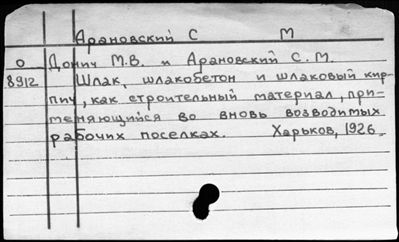 Арановский С М
О Донич М.В. и Арановский С.М.
8912 Шлак, шлакобетон и шлаковый кир-
пич, как строительный материал, при-
меняющийся во вновь возводимых
рабочих поселках. Харьков, 1926.